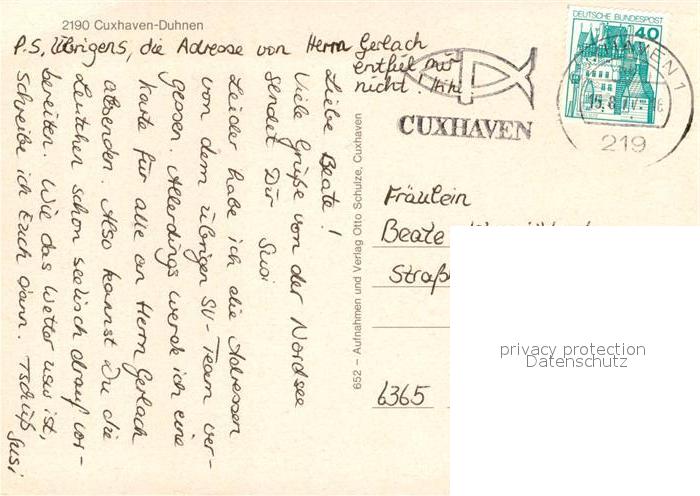 2190 Cuxhaven-Duhnen
P.S. Übrigens, die Adresse von Herrn Gerlach
enthielt mir
nicht.
Liebe Beate!
Viele Grüße von der Nordsee
sendet Dir Susi
Leider habe ich die Adressen
von dem übrigen SV-Team ver-
gessen. Allerdings werde ich eine
Karte für alle an Herrn Gerlach
absenden. Also kannst Du die
Leutchen schon seelisch drauf vor-
bereiten. Wie das Wetter usw ist,
schreibe ich Euch dann. Tschüß Susi
652 – Aufnahmen und Verlag Otto Schulze, Cuxhaven
DEUTSCHE BUNDESPOST
40
CUXHAVEN
219
Fräulein
Beate
6365
privacy protection
Datenschutz